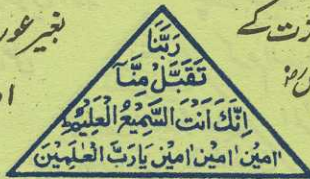 رَبَّنَا
تَقَبَّلْ مِنَّآ
اِنَّكَ اَنْتَ السَّمِيْعُ الْعَلِيْمُ ط
اٰمِيْن اٰمِيْن اٰمِيْن يَارَبَّ الْعٰلَمِيْن
بغیر
کے